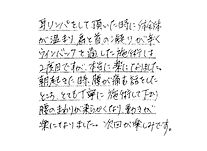 耳リンパをして頂いた時に、体全体
が温まり、肩と首の凝りが軽く
ウィンバックを通した施術は
2度目ですが、本当に楽になりました。
朝起きた時、腰が痛む話をした
ところ、とても丁寧に施術して下さり
腰のまわりが柔らかくなり、動きが
楽になりました。次回が楽しみです。